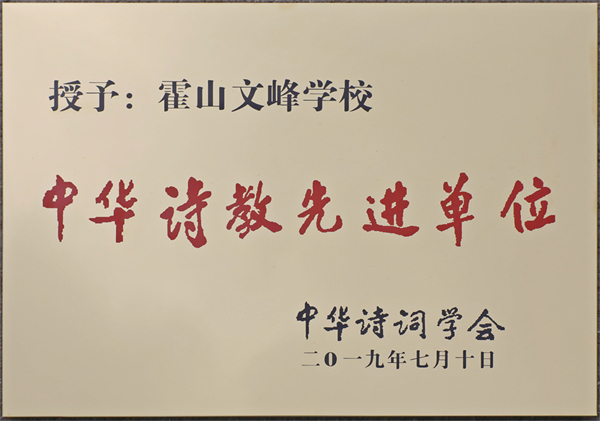 授予：霍山文峰学校
中华诗教先进单位
中华诗词学会
二0一九年七月十日